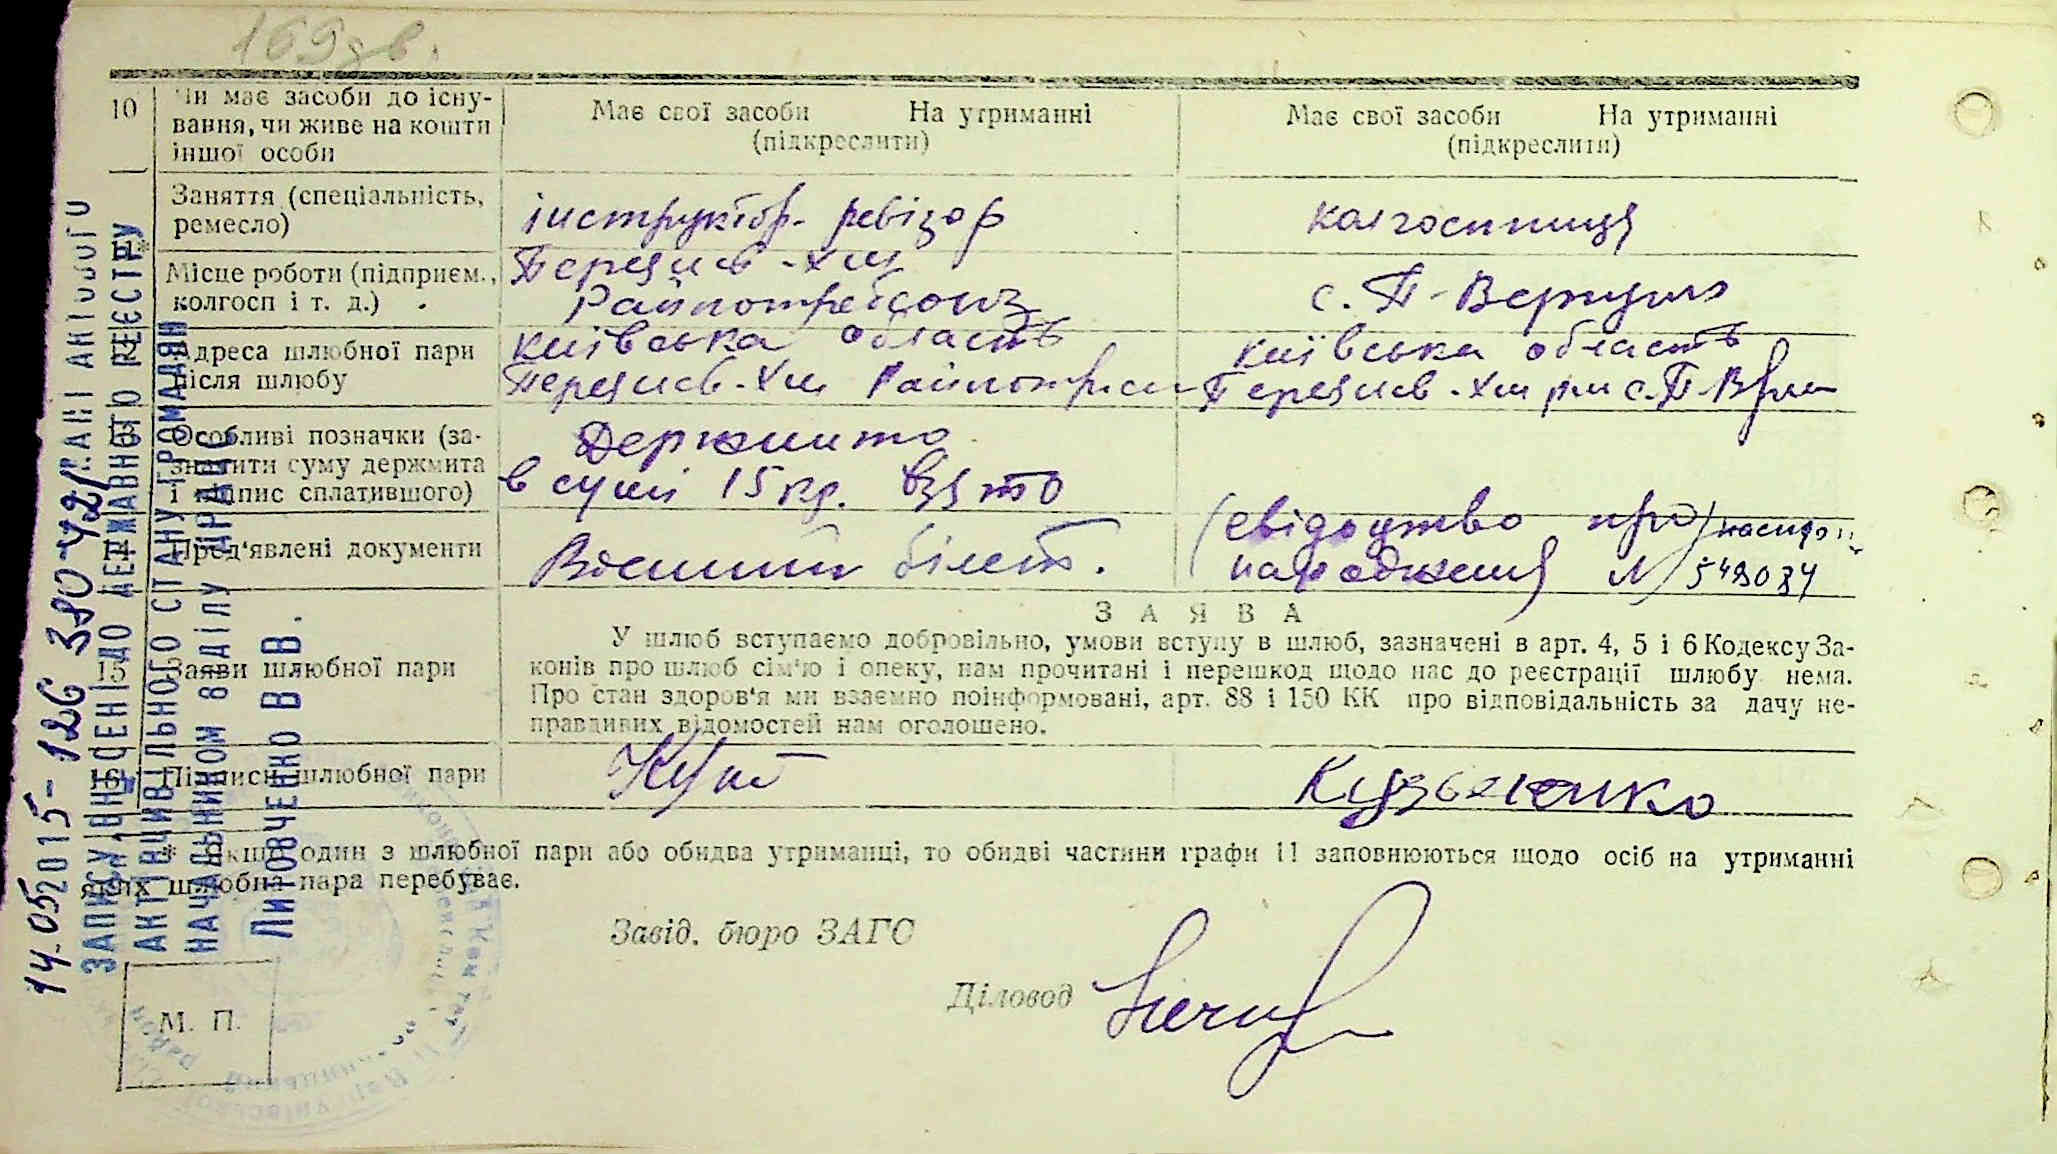 169 зв.
10 Чи має засоби до існу- Має свої засоби На утриманні Має свої засоби На утриманні
вання, чи живе на кошти (підкреслити) (підкреслити)
іншої особи
Заняття (спеціальність, інструктор-ревізор колгоспниця
ремесло)
Місце роботи (підприєм., Переяслав-Хм
колгосп і т. д.) Райпотребсоюз с. П-
Адреса шлюбної пари Київська область Київська область
після шлюбу Переяслав-Хм Переяслав-Хм с. П-
Особливі позначки (за- Держмито
значити суму держмита в сумі 15 кр. взято
і підпис сплатившого)
Пред'явлені документи Воєнний білет. (свідоцтво про)
народження N 549084
ЗАЯВА
15 Заяви шлюбної пари У шлюб вступаємо добровільно, умови вступу в шлюб, зазначені в арт. 4, 5 і 6 Кодексу За-
конів про шлюб сім'ю і опеку, нам прочитані і перешкод щодо нас до реєстрації шлюбу нема.
Про стан здоров'я ми взаємно поінформовані, арт. 88 і 150 КК про відповідальність за дачу не-
правдивих відомостей нам оголошено.
16 Підписи шлюбної пари Кузьменко
* Якщо один з шлюбної пари або обидва утриманці, то обидві частини графи 11 заповнюються щодо осіб на утриманні
яких шлюбна пара перебуває.
Завід. бюро ЗАГС
Діловод
М. П.
14-05 2015-126 380 42
ЗАПИСУ ВНЕСЕНІ ДО ДЕРЖАВНОГО РЕЄСТРУ
АКТІВ ЦИВІЛЬНОГО СТАНУ ГРОМАДЯН
НАЧАЛЬНИКОМ ВІДДІЛУ ДРАЦС
Литовченко В В.